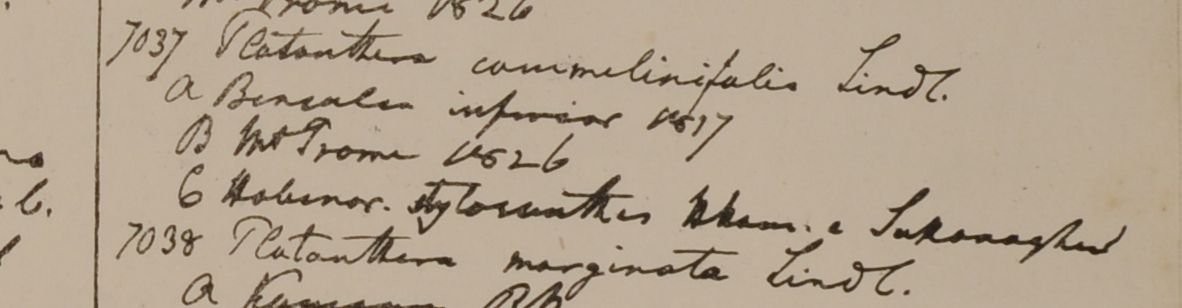 Mt Prome 1826
7037 Platanthera commelinifolia Lindl.
a Bengalea inferior 1817
B Mt Prome 1826
C Habenar. stylosanthes Ham. e
7038 Platanthera marginata Lindl.
a